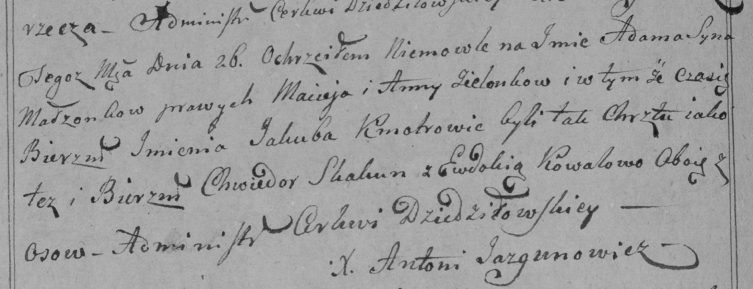 rzecza – Administr Cerkwi Dziedziłowskiey
Tegoż Mca Dnia 26. Ochrzciłem Niemowle na Jmie Adama Syna
Małżonkow prawych Macieja i Anny Zielonkow i w tym że czasie
Bierzm Jmienia Jakuba Kmotrowie byli tak Chrztu iako
też i Bierzm Chwiedor Skakun z Ewdokią Kowalowo Oboie z
Osow – Administr Cerkwi Dziedziłowskiey —
X. Antoni Jazgunowicz –